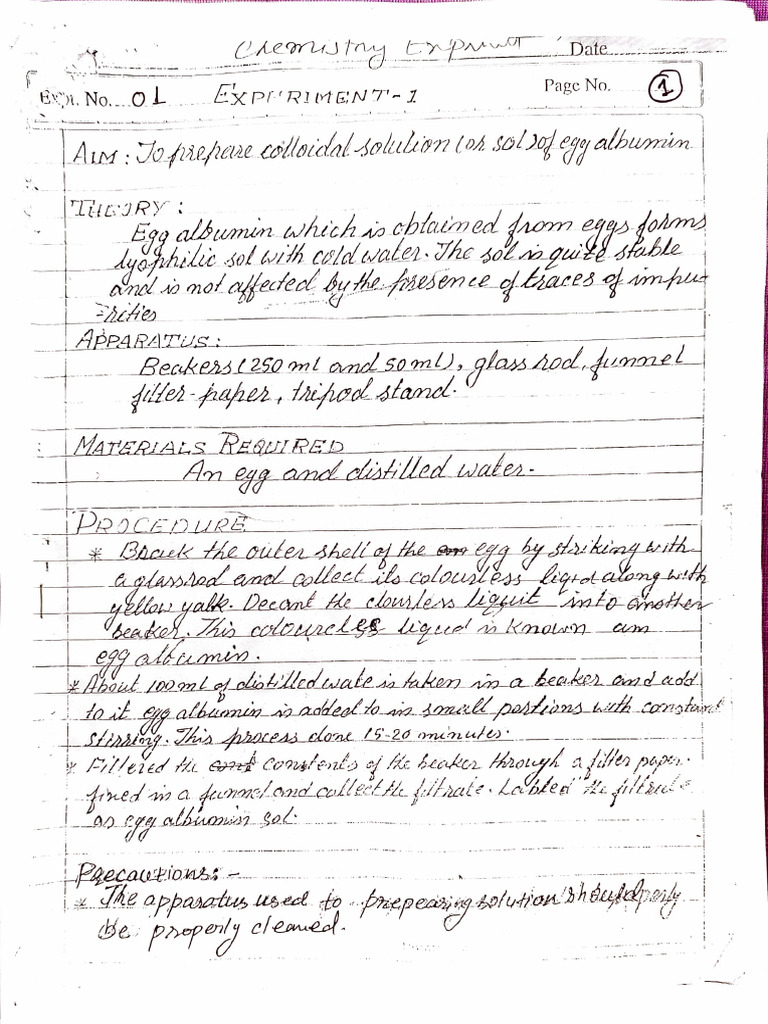 Chemistry Date
Expt. No. 01 EXPERIMENT-1 Page No. 1
AIM: To prepare colloidal solution (or sol) of egg albumin
THEORY:
Egg albumin which is obtained from eggs forms
lyophilic sol with cold water. The sol is quite stable
and is not affected by the presence of traces of impu-
rities
APPARATUS:
Beakers (250 ml and 50 ml), glass rod, funnel
filter-paper, tripod stand.
MATERIALS REQUIRED
An egg and distilled water.
PROCEDURE
* Brack the outer shell of the egg by striking with
a glassrod and collect its colourless liqid along with
yellow yalk. Decant the clourless liquit into another
beaker. This colourcless liqued is known am
egg albumin.
* About 100ml of distilled wate is taken in a beaker and add
to it egg albumin is added to in small portions with constant
stirring. This process done 15-20 minutes.
* Filtered the constents of the beaker through a filter paper.
fined in a funnel and collect the filtrate. Labled the filtrate
as egg albumin sol.
Precautions:-
* The apparatus used to prepearing solution should
be properly cleaned.